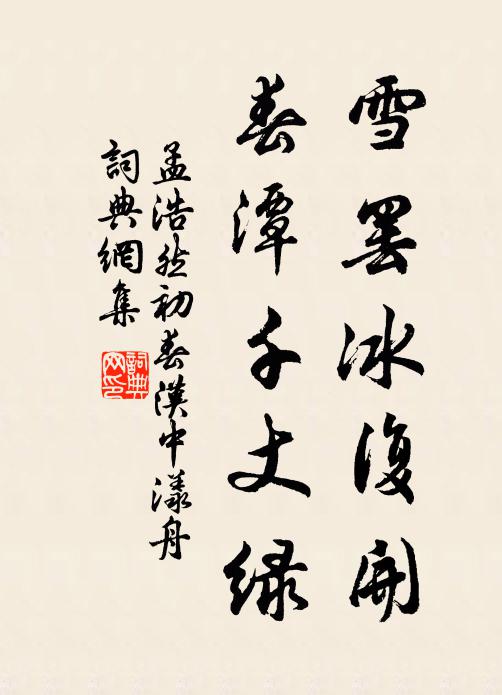 雪罢冰復開
春潭千丈緑
孟浩然初春漢中漾舟
詞典網集
詞典
网印